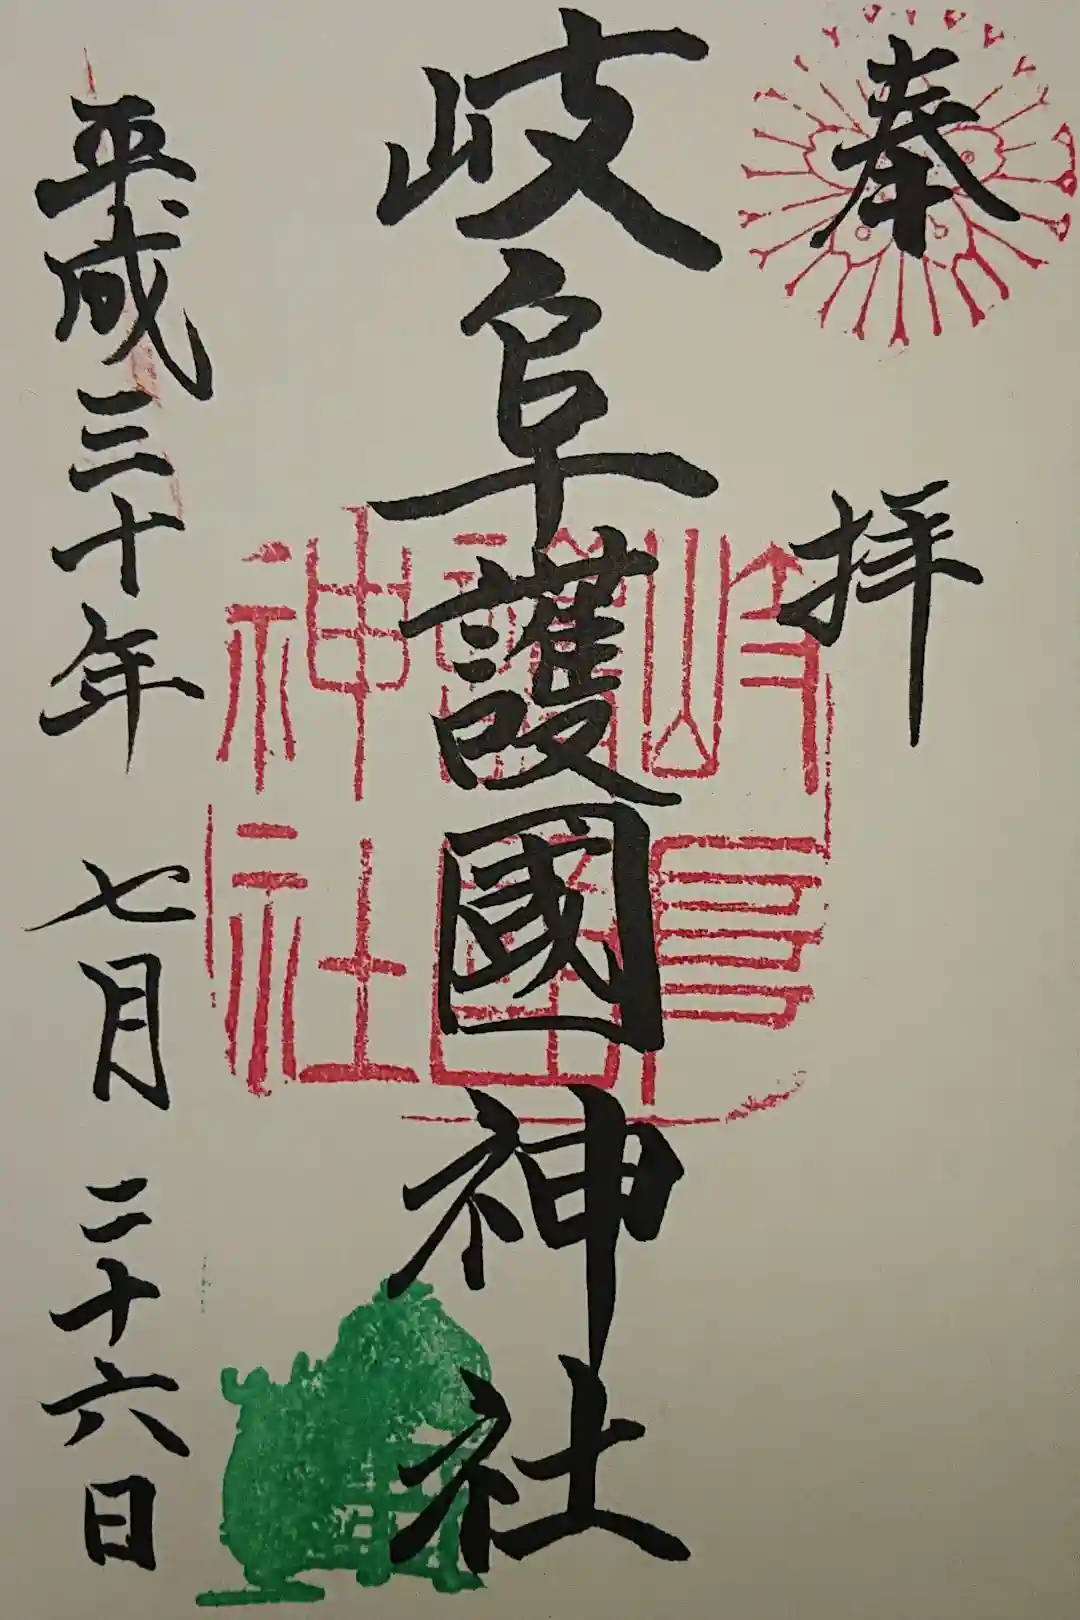 奉拝
岐阜護國神社
岐阜
護國
神社
平成三十年七月二十六日